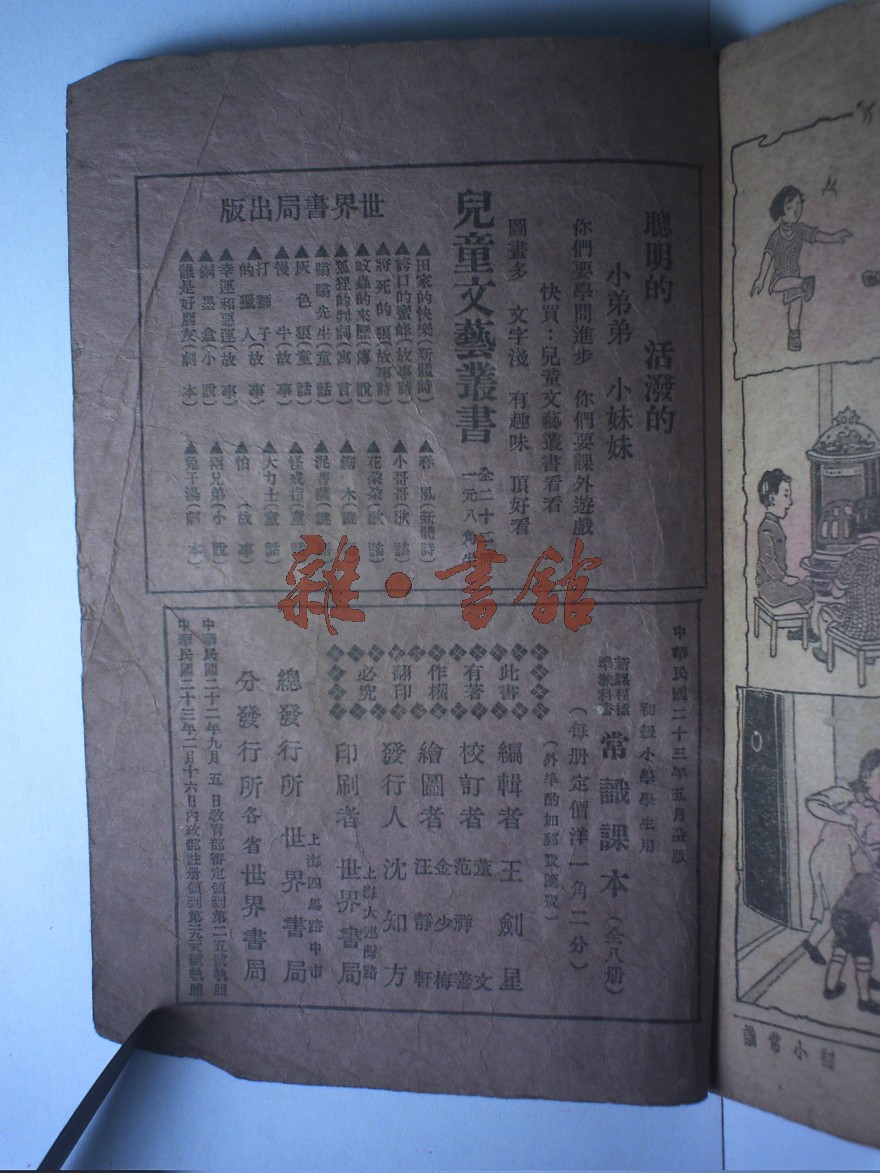 聰明的 活潑的
小弟弟 小妹妹
你們要學問進步 你們要課外遊戲
快買：兒童文藝叢書看看
圖畫多 文字淺 有趣味 頂好看
兒童文藝叢書
世界書局出版
▲田家的快樂(新體詩)
▲誇口的蜜蜂(故事詩)
▲將死的狼(故事詩)
▲蚊蟲的來歷(傳說)
▲狐狸的判詞(寓言)
▲嗡嗡先生(童話)
▲灰色狼(童話)
▲慢牛(故事)
▲打獅子的獵人(故事)
▲幸運和惡運(故事)
▲銅墨盒(小說)
▲誰是好朋友(劇本)
▲春風(新體詩)
▲小哥哥(歌謠)
▲花朵朵(歌謠)
▲怪戒指(童話)
▲大力士(童話)
▲怕(故事)
▲兩兄弟(小說)
▲兔子湯(劇本)
雜·書館
中華民國二十三年五月
初級小學學生用
新課程標準教科書 常識課本(全八册)
(每册定價洋一角二分)
(外埠酌加郵費匯費)
此書有著作權翻印必究
編輯者 王劍星
校訂者 董文 范祥善
繪圖者 金少梅 汪靜軒
發行人 沈知方
印刷者 世界書局
上海大連灣路
總發行所 世界書局
上海四馬路中市
分發行所 各省世界書局
中華民國二十二年九月五日教育部審定領到第二五號執照
中華民國二十三年二月十六日內政部註册領到第
初小常識